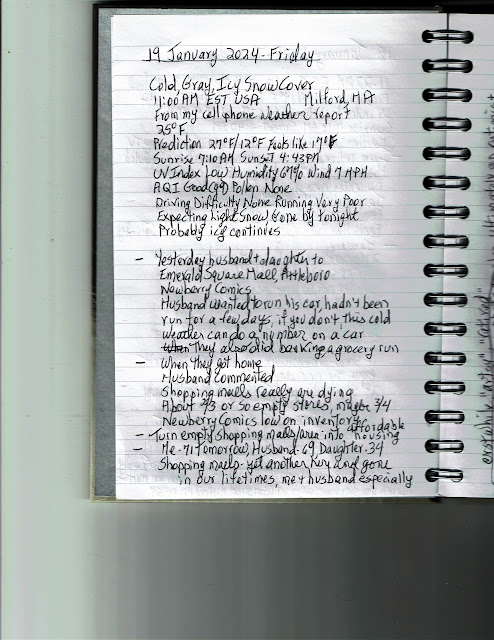 19 January 2024 - Friday
Cold, Gray, Icy Snow Cover
11:00 AM EST USA Milford, MA
From my cell phone weather report
25°F
Prediction 27°F/12°F Feels like 17°F
Sunrise 7:10 AM Sunset 4:43 PM
UV Index Low Humidity 67% Wind 7 MPH
AQI Good (49) Pollen None
Driving Difficulty None Running Very Poor
Expecting Light Snow Gone by tonight
Probably icy continues
- Yesterday husband + daughter to
Emerald Square Mall, Attleboro
Newberry Comics
Husband wanted to run his car, hadn't been
run for a few days, if you don't, this cold
weather can do a number on a car
When They also did banking & grocery run
- When they got home
Husband commented
Shopping malls really are dying
About 2/3 or so empty stores, maybe 3/4
Newberry Comics low on inventory
- Turn empty shopping malls/area into affordable housing
- Me - 71 tomorrow, Husband - 69 Daughter - 34
Shopping malls - yet another here and gone
in our lifetimes, me + husband especially